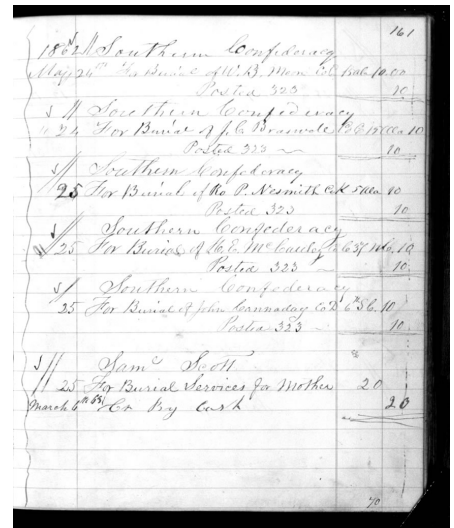 161
1862 // Southern Confederacy
May 24th For Burial of W. B. Co 10.00
Posted 323 10
√ // Southern Confederacy
" 24 For Burial of J. C. Co 10
Posted 323 10
√ // Southern Confederacy
25 For Burial of P. Nesmith Co K 5 Ala 10
Posted 323 10
√ // Southern Confederacy
" 25 For Burial of E. Co 10
Posted 323 10
√ // Southern Confederacy
25 For Burial of John Cannaday Co D 6th S C. 10
Posted 323 10
√ // Saml Scott
25 For Burial Services for Mother 20
March 6th 63 Cr By Cash 20
70